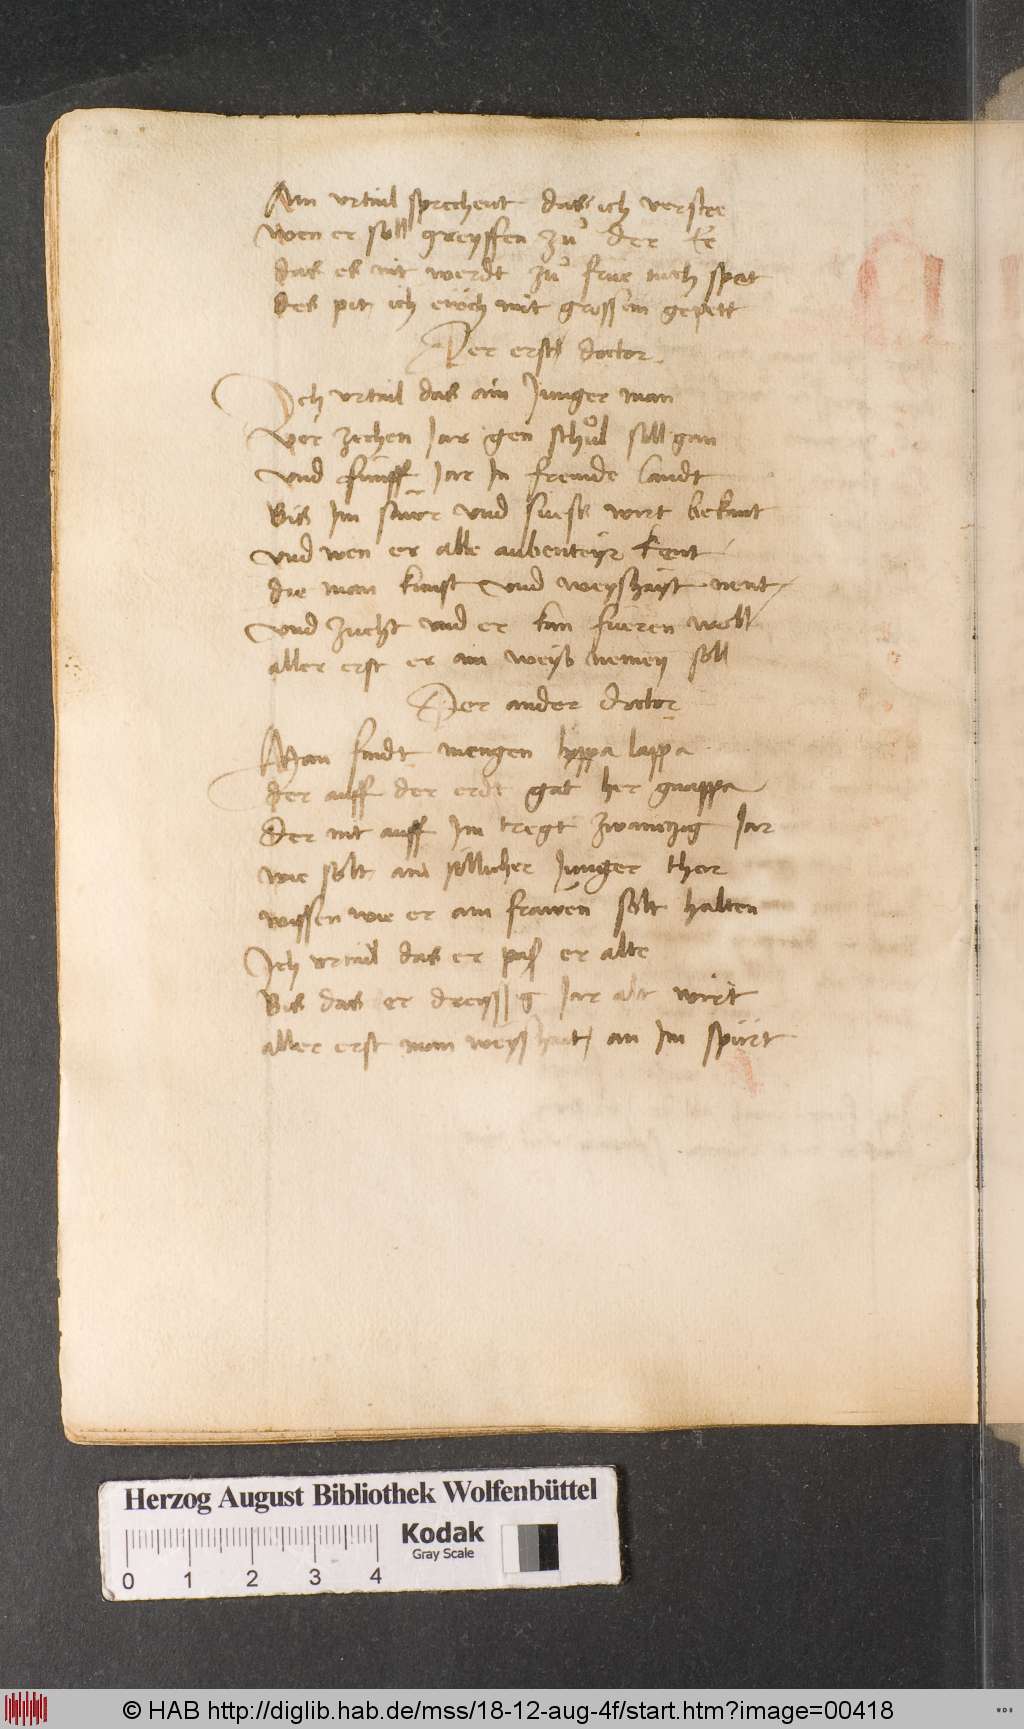 Ain vrtail sprechent das ich verstee
wen er soll greyffen zů der Ee
das es nit werdt zů frue nach spat
des pit ich eüch mit grossem gepett
Der erst doctor
Ich vrtail das ain Junger man
vor zechen Jar gen schůl söll gan
vnd fünff Jar In fremde landt
Bis Im saur vnd suess wirt bekant
vnd wen er alle aubenteyr kent
die man kunst vnd weyshayt nent
vnd zucht vnd er kan fueren woll
aller erst er ain weyb nemen söll
Der ander doctor
Man findt mengen lyppa lappa
der auff der erdt gat her gnappa
Der nit auff Im tregt zwaintzig Jar
wie sölt ain söllicher Junger thor
wissen wie er ain frawen sölt halten
Ich vrtail das er pass er alte
Bis das er dreyssig Jar alt wirt
aller erst man weyshait an Im spürt
Herzog August Bibliothek Wolfenbüttel
Kodak
Gray Scale
0 1 2 3 4
© HAB http://diglib.hab.de/mss/18-12-aug-4f/start.htm?image=00418